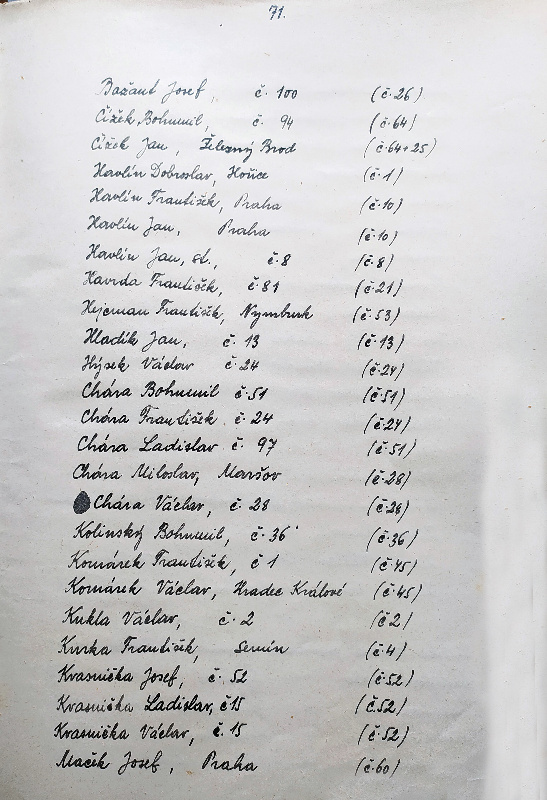 71.
Bažant Josef, č. 100 (č.26)
Čížek Bohumil, č. 94 (č.64)
Čížek Jan, Železný Brod (č.64+25)
Havlín Dobroslav, Hořice (č.1)
Havlín František, Praha (č.10)
Havlín Jan, Praha (č.10)
Havlín Jan, st., č.8 (č.8)
Havrda František, č.81 (č.21)
Hejcman František, Nymburk (č.53)
Hladík Jan, č. 13 (č.13)
Hýsek Václav č. 24 (č.24)
Chára Bohumil č.51 (č.51)
Chára František č. 24 (č.24)
Chára Ladislav č. 97 (č.51)
Chára Miloslav, Maršov (č.28)
Chára Václav, č. 28 (č.28)
Kolinský Bohumil, č.36 (č.36)
Komárek František, č 1 (č.45)
Komárek Václav, Hradec Králové (č.45)
Kukla Václav, č. 2 (č2)
Kurka František, Semín (č.4)
Krasnička Josef, č. 52 (č.52)
Krasnička Ladislav, č15 (č.52)
Krasnička Václav, č. 15 (č.52)
Mačík Josef, Praha (č.60)